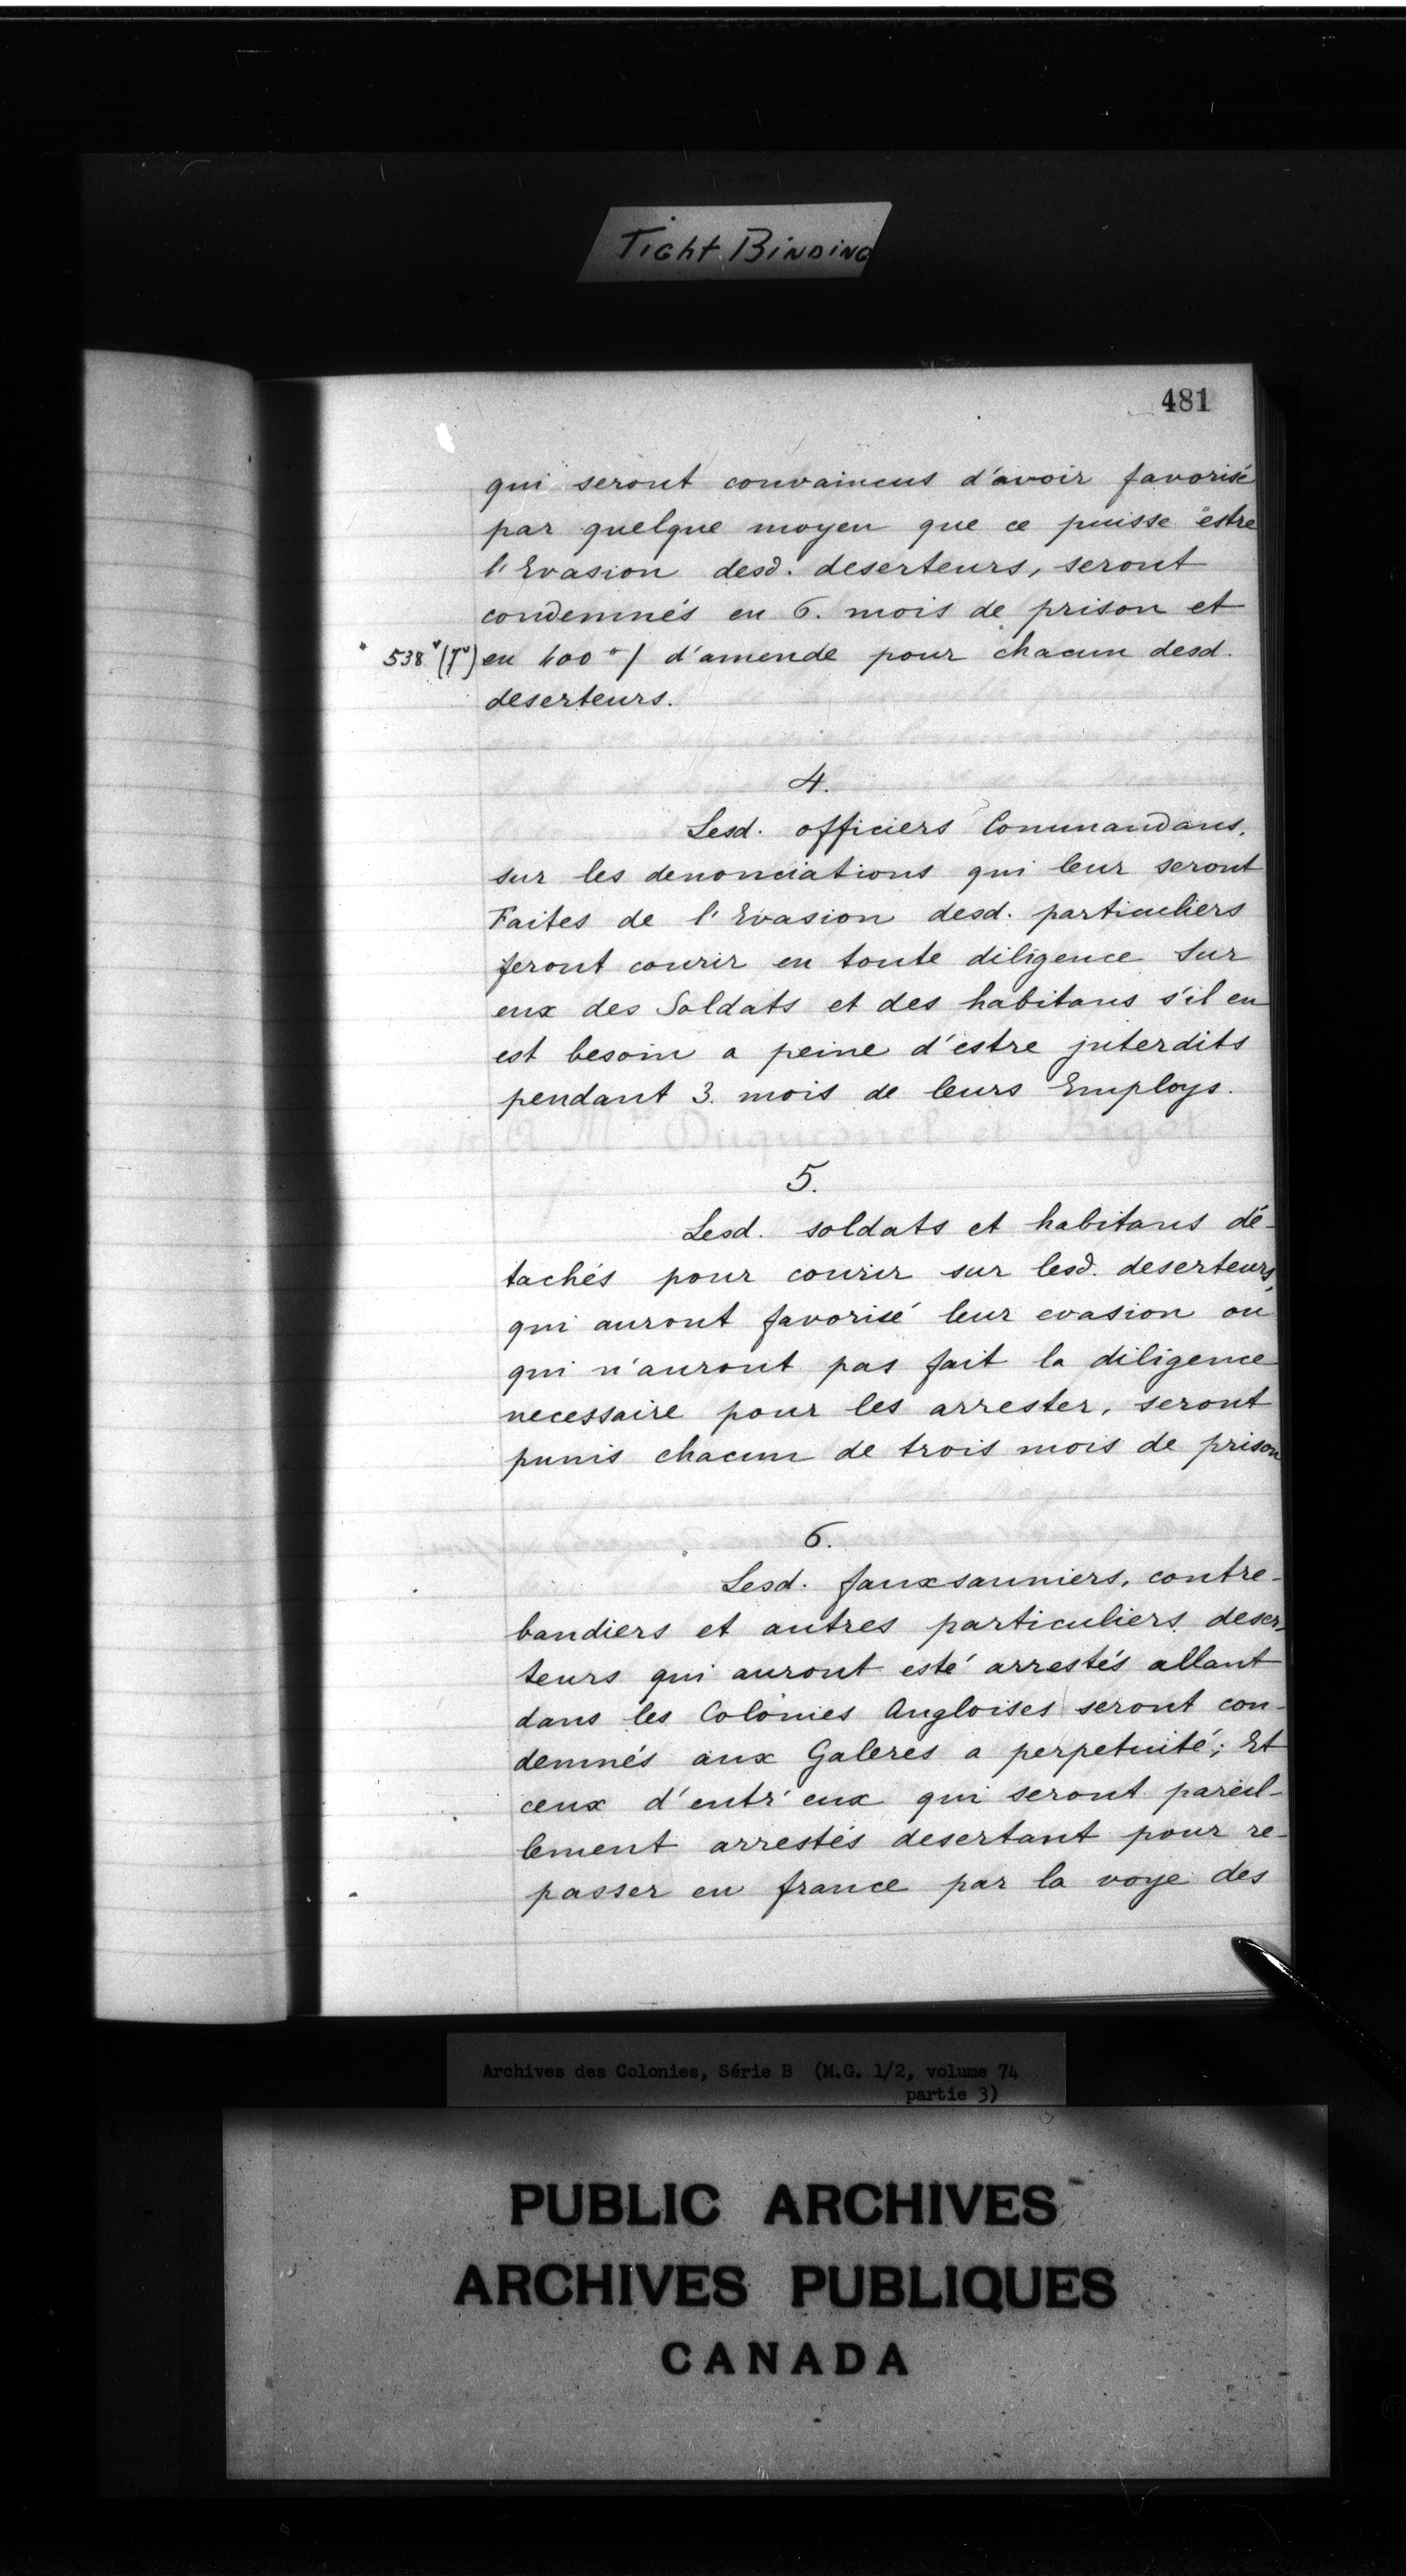 Tight Binding
481
qui seront convaincus d'avoir favorisé
par quelque moyen que ce puisse estre
l'Evasion desd. deserteurs, seront
condemnés en 6. mois de prison et
538 en 400 d'amende pour chacun desd.
deserteurs.
4.
Lesd. officiers Commandans,
sur les denonciations qui leur seront
Faites de l'Evasion desd. particuliers
feront courir en toute diligence sur
eux des Soldats et des habitans s'il en
est besoin a peine d'estre interdits
pendant 3. mois de leurs Employs.
5.
Lesd. soldats et habitans dé-
tachés pour courir sur lesd. deserteurs,
qui auront favorisé leur evasion ou
qui n'auront pas fait la diligence
necessaire pour les arrester, seront
punis chacun de trois mois de prison
6.
Lesd. fauxsauniers, contre-
bandiers et autres particuliers deser-
teurs qui auront esté arrestés allant
dans les Colonies Angloises seront con-
demnés aux Galeres a perpetuité; Et
ceux d'entr'eux qui seront pareil-
lement arrestés desertant pour re-
passer en france par la voye des
Archives des Colonies, Série B (M.G. 1/2, volume 74
partie 3)
PUBLIC ARCHIVES
ARCHIVES PUBLIQUES
CANADA